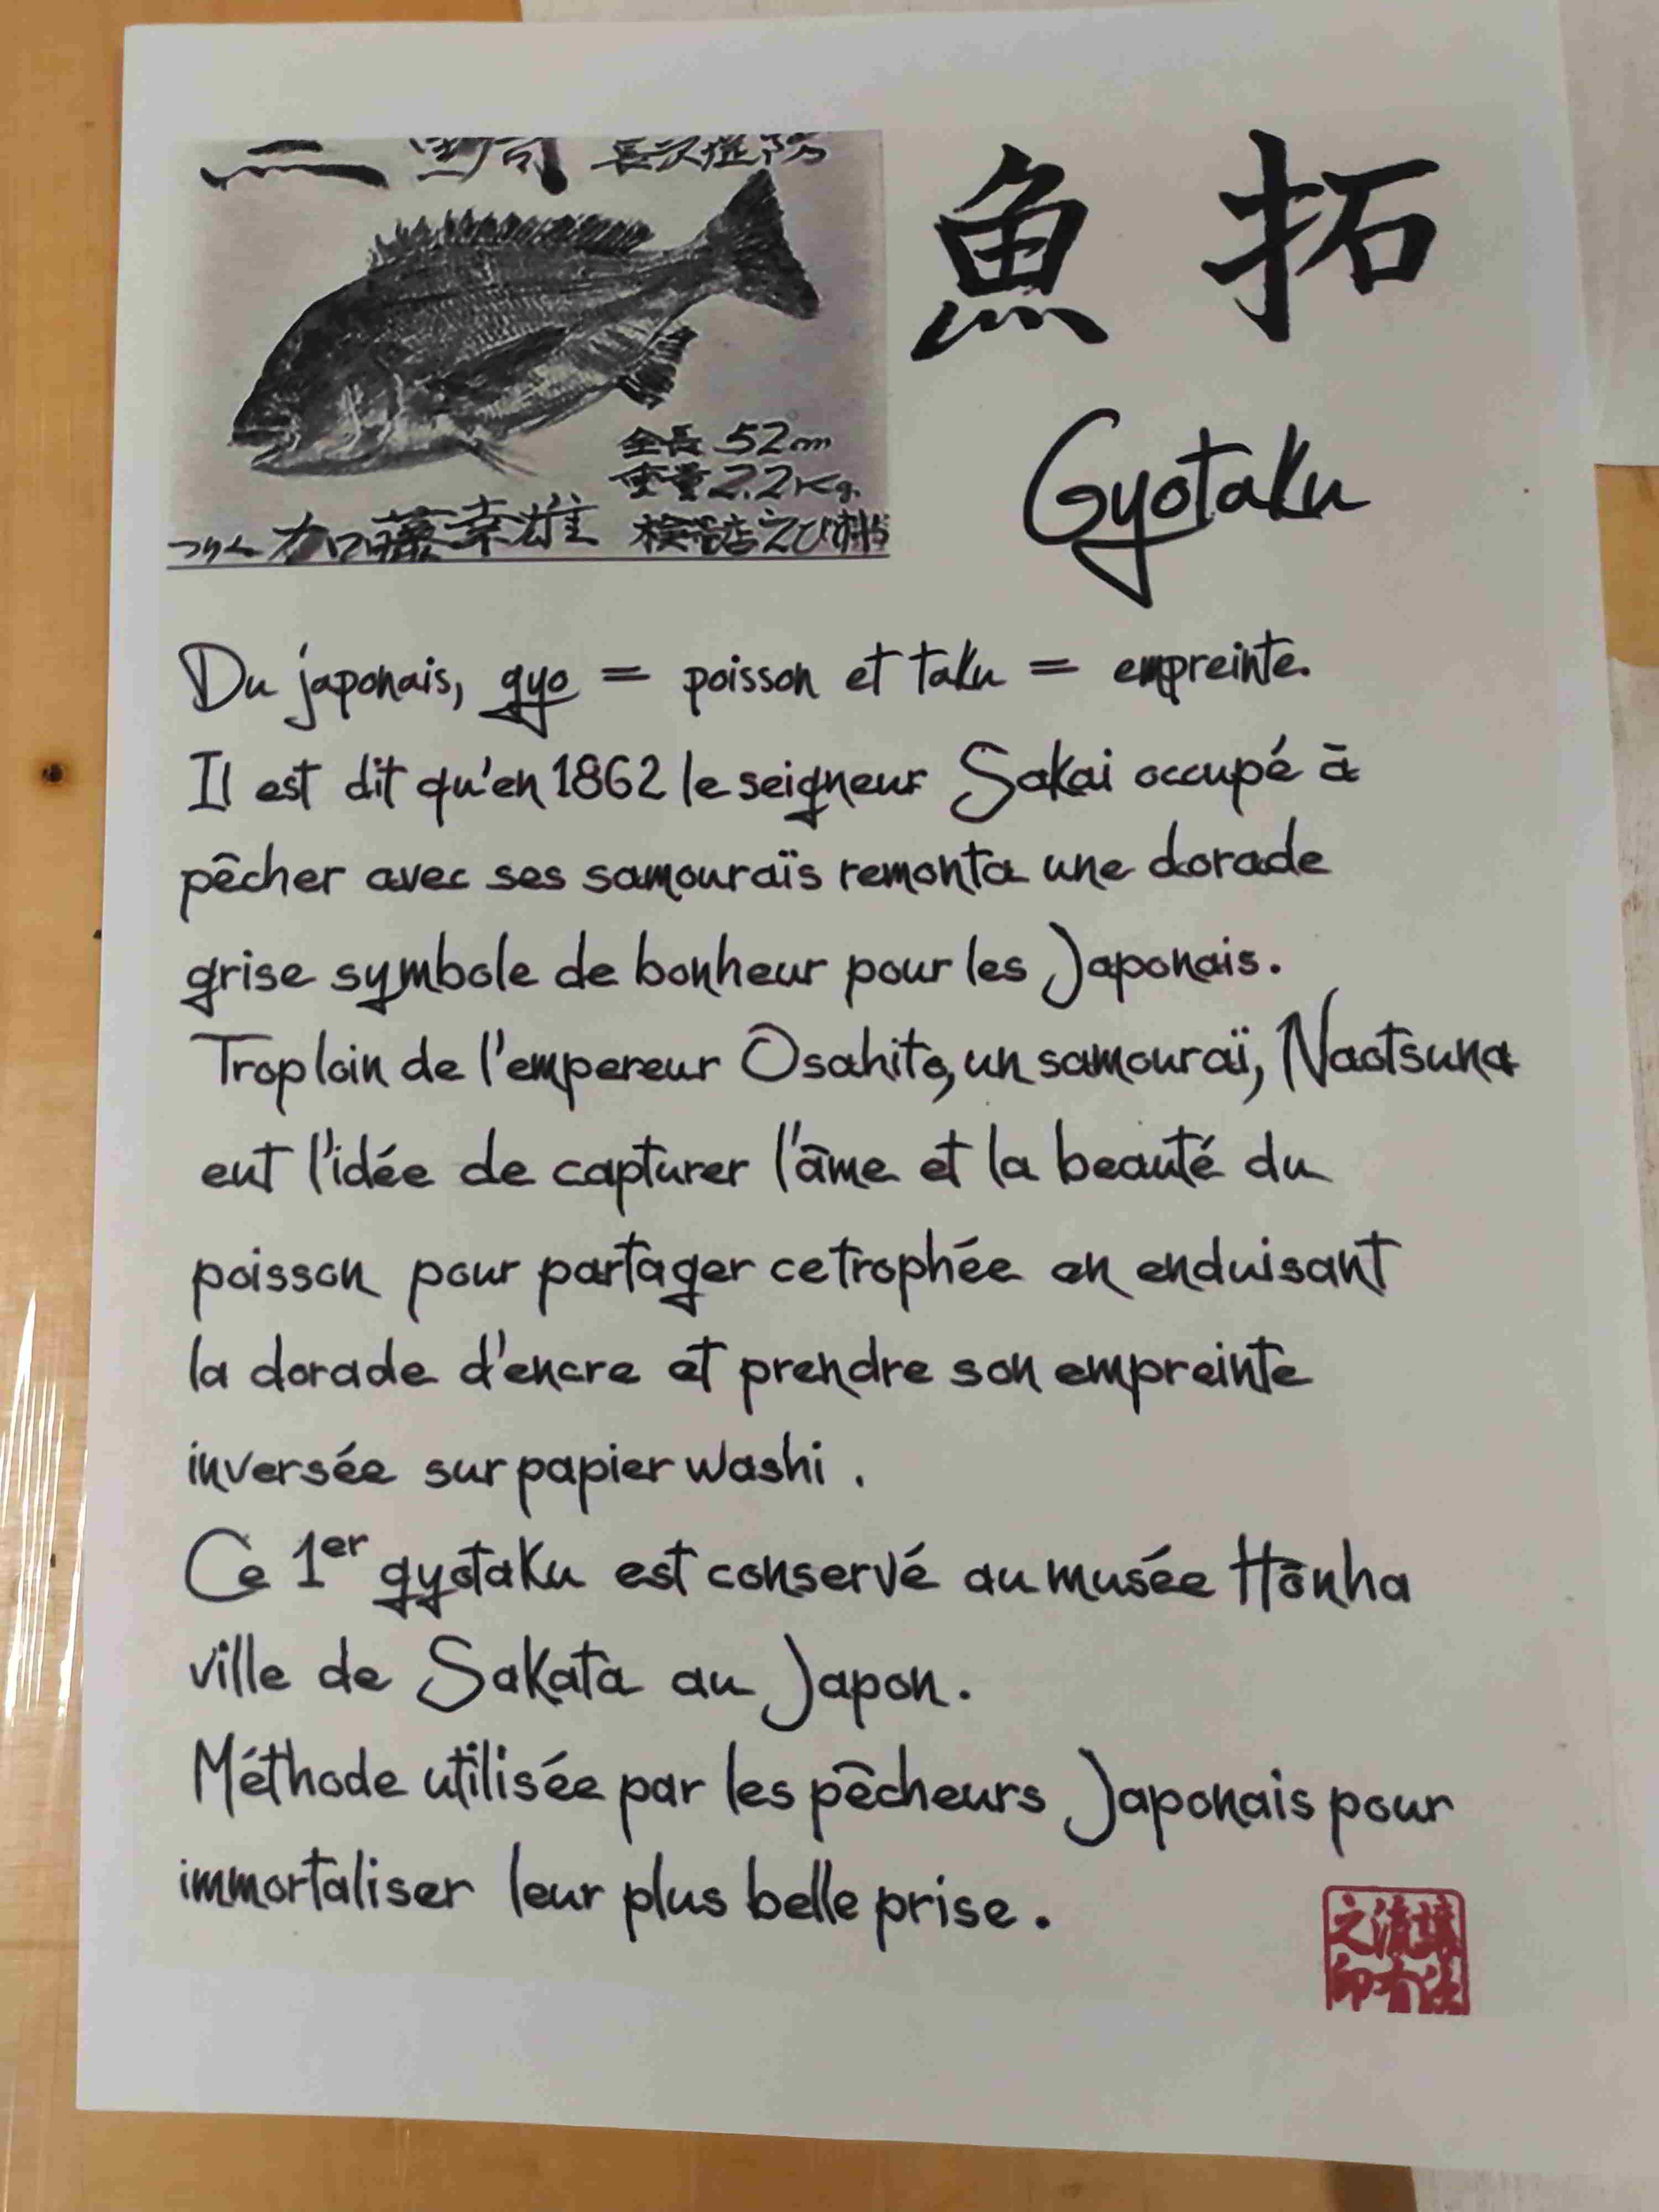 魚拓
Gyotaku
全長 52cm
重量 2.2Kg.
加藤幸雄
Du japonais, gyo = poisson et taku = empreinte.
Il est dit qu'en 1862 le seigneur Sakai occupé à
pêcher avec ses samouraïs remonta une dorade
grise symbole de bonheur pour les Japonais.
Trop loin de l'empereur Osahito, un samouraï, Naotsuna
eut l'idée de capturer l'âme et la beauté du
poisson pour partager ce trophée en enduisant
la dorade d'encre et prendre son empreinte
inversée sur papier washi.
Ce 1er gyotaku est conservé au musée Hōnha
ville de Sakata au Japon.
Méthode utilisée par les pêcheurs Japonais pour
immortaliser leur plus belle prise.